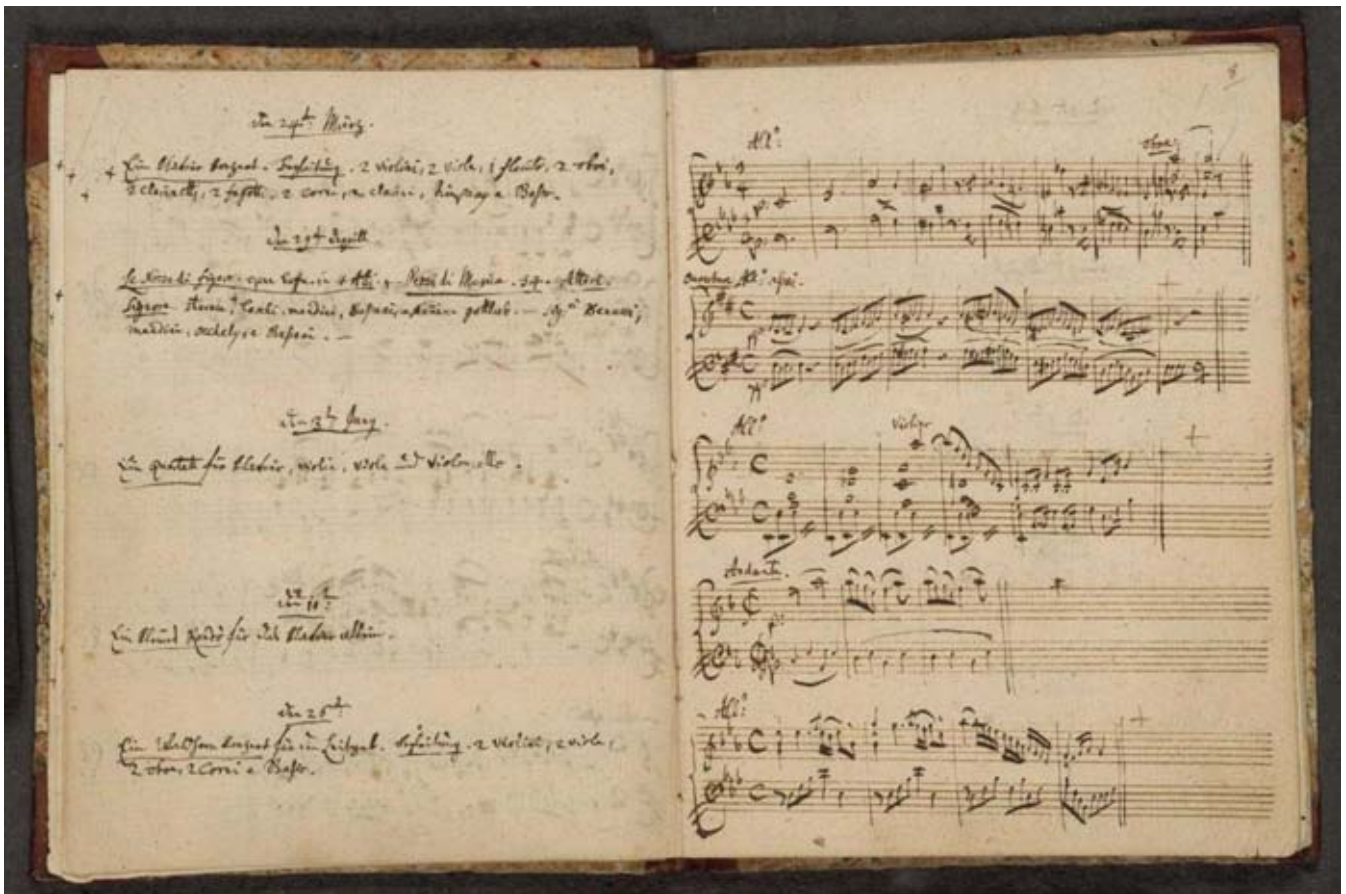 den 24t März.
Ein Klavier Konzert. Begleitung. 2 violini, 2 viole, 1 flauto, 2 oboi,
2 clarinetti, 2 fagotti, 2 corni, 2 clarini, timpany e Baßo.
den 29t April
le Nozze di Figaro. opera buffa. in 4 Atti. Pezzi di Musica. 34. Attori.
Signore. Storace, Laschi, mandini, Bußani, e gottlieb. — Sigri Benucci,
mandini, occhely, e Bußani. —
den 3t Juny.
Ein quartett für klavier, violin, viola und violoncello.
den 10t
Ein kleines Rondò für das klavier allein.
den 26t
Ein Waldhorn Konzert für den leitgeb. begleitung. 2 violini, 2 viole,
2 oboe, 2 Corni e Baßo.
8
Allo:
oboe
p:
Ouverture Allo: aßai.
pp
Allo
violino
Andante.
p:
Allo